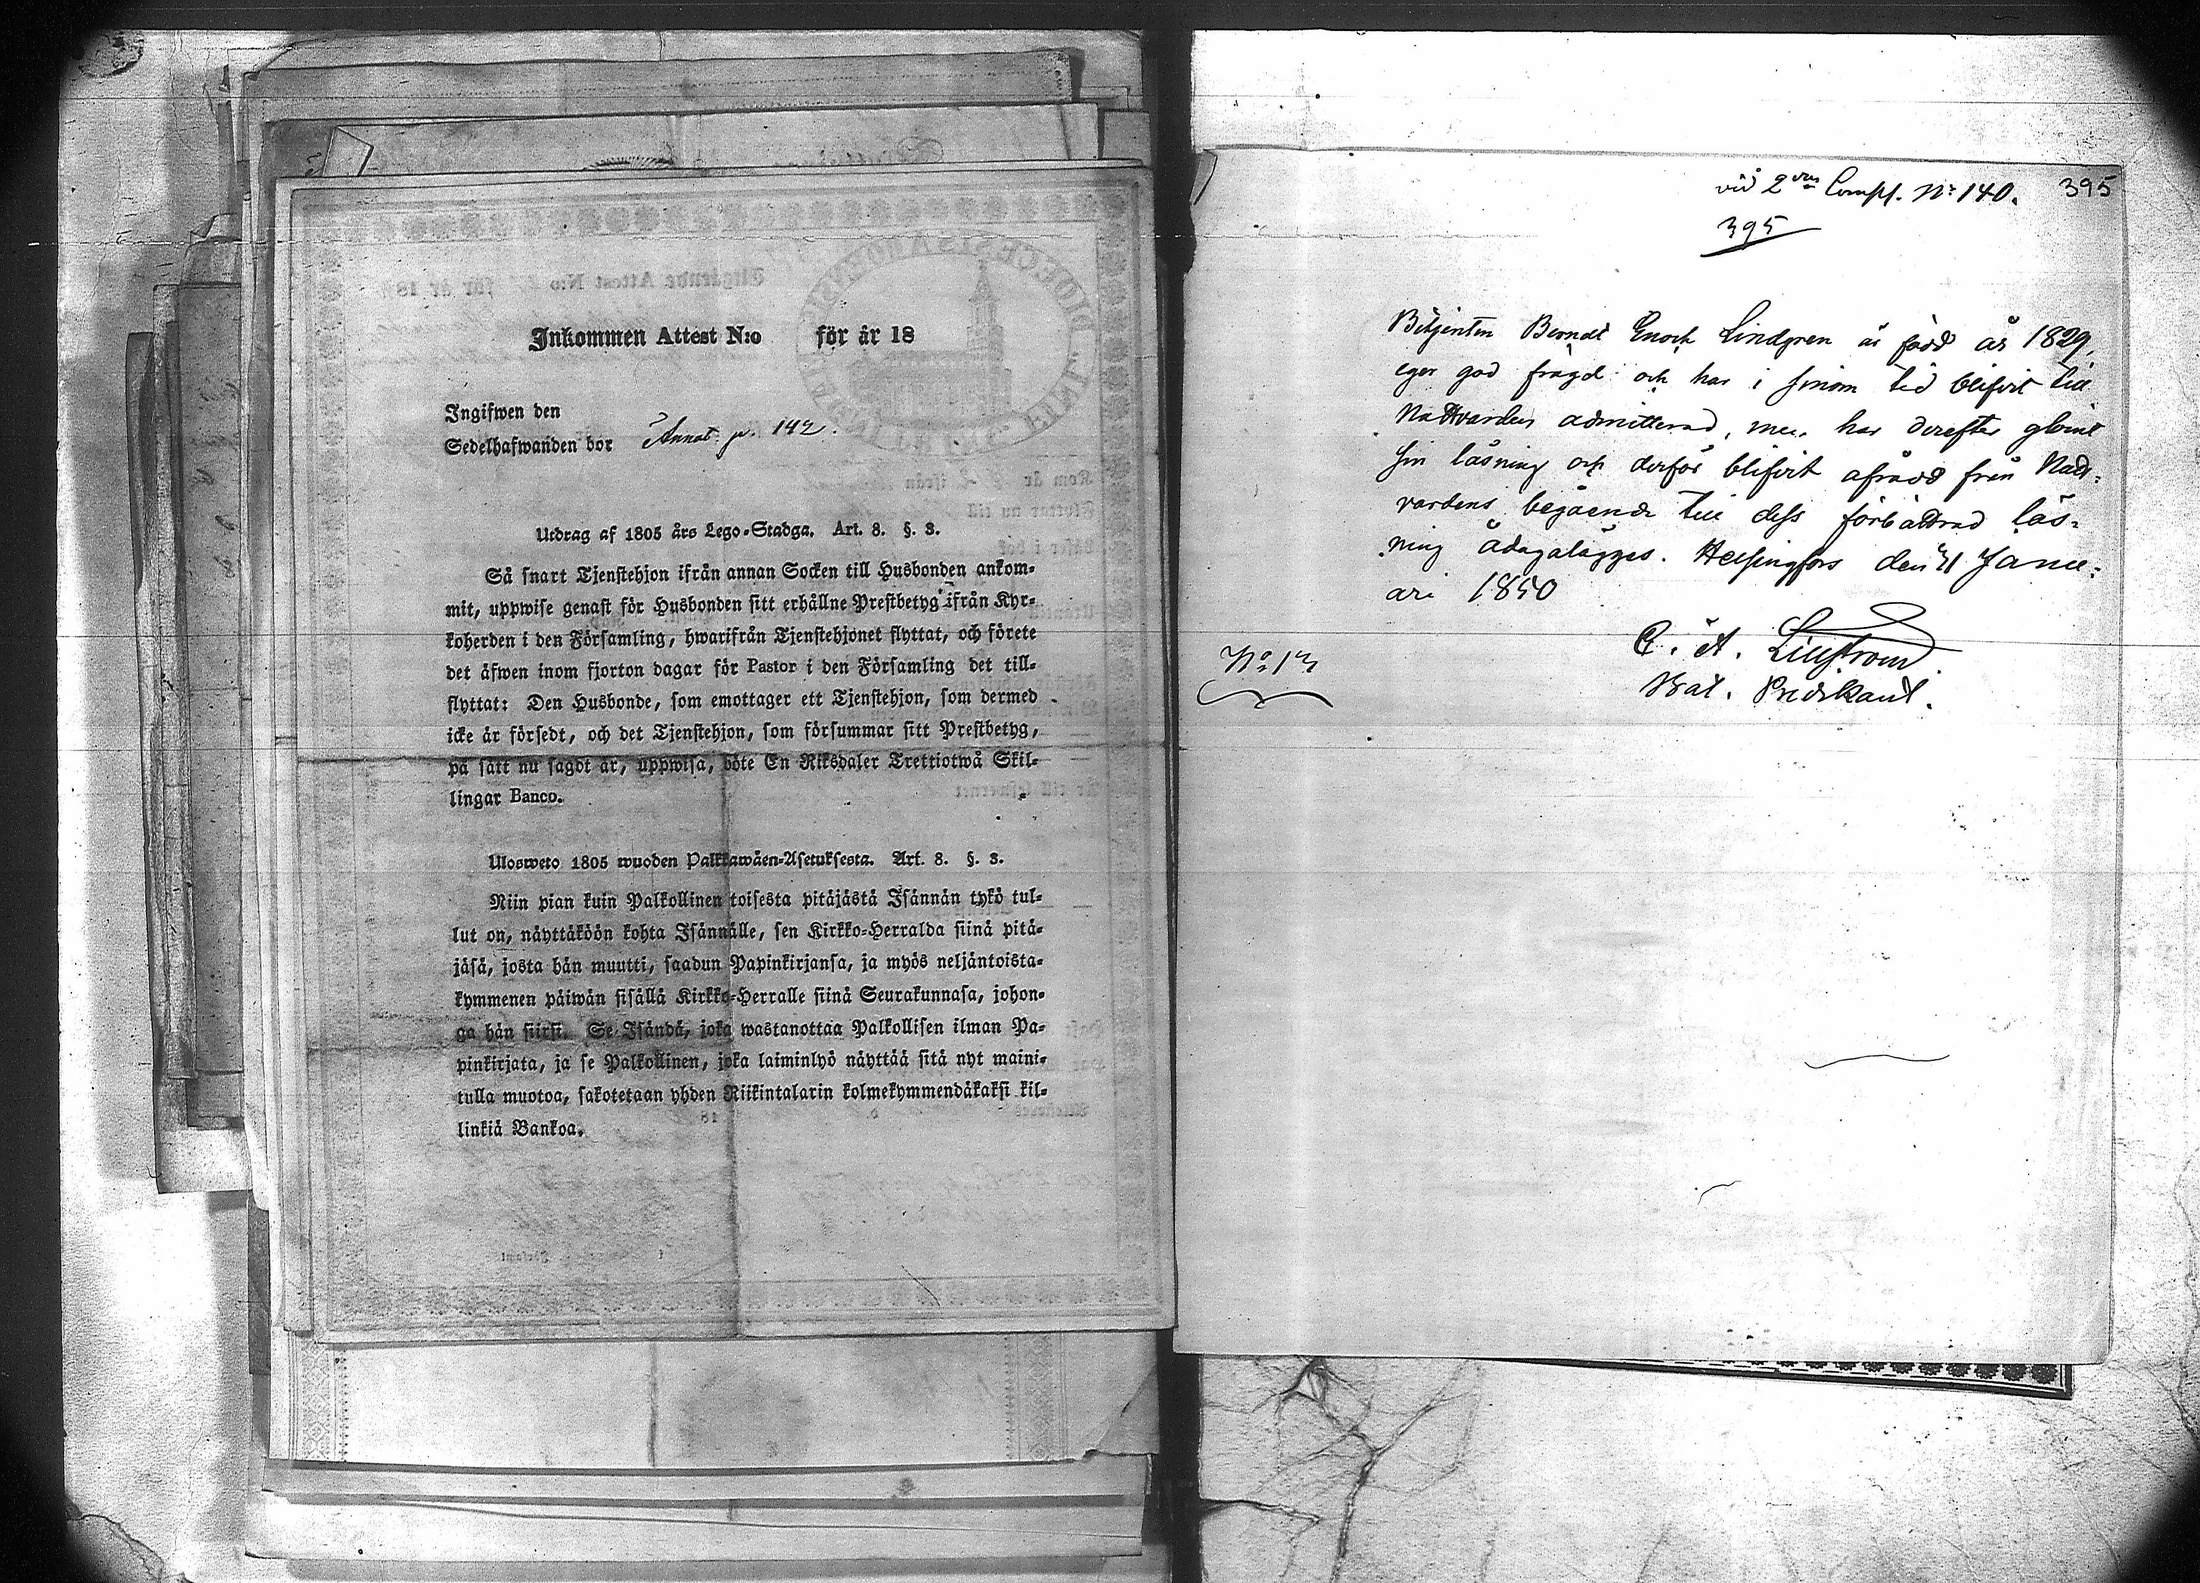 Inkommen Attest N:o för år 18
Ingifwen den
Sedelhafwanden bor Annot. p. 142.
Utdrag af 1805 års Lego-Stadga. Art. 8. §. 3.
Så snart Tjenstehjon ifrån annan Socken till Husbonden ankom-
mit, uppwise genast för Husbonden sitt erhållne Prestbetyg ifrån Kyr-
koherden i den Församling, hwarifrån Tjenstehjonet flyttat, och förete
det äfwen inom fjorton dagar för Pastor i den Församling det till-
flyttat: Den Husbonde, som emottager ett Tjenstehjon, som dermed
icke är försedt, och det Tjenstehjon, som försummar sitt Prestbetyg,
på sätt nu sagdt är, uppwisa, böte En Riksdaler Trettiotwå Skil-
lingar Banco.
Ulosweto 1805 wuoden Palkkawäen-Asetuksesta. Art. 8. §. 3.
Niin pian kuin Palkollinen toisesta pitäjästä Isännän tykö tul-
lut on, näyttäköön kohta Isännälle, sen Kirkko-Herralda siinä pitä-
jäsä, josta hän muutti, saadun Papinkirjansa, ja myös neljäntoista-
kymmenen päiwän sisällä Kirkko-Herralle siinä Seurakunnasa, johon-
ga hän siirsi. Se Isändä, joka wastanottaa Palkollisen ilman Pa-
pinkirjata, ja se Palkollinen, joka laiminlyö näyttää sitä nyt maini-
tulla muotoa, sakotetaan yhden Riikintalarin kolmekymmendäkaksi kil-
linkiä Bankoa.
vid 2dra Comp. N:o 140. 395
395
Betjenten Berndt Enoch Lindgren är född år 1829,
eger god frägd och har i sinom tid blifvit till
Nattvarden admitterad, men har derefter glömt
sin läsning och derför blifvit afrådd från Natt-
vardens begående till dess förbättrad läs-
ning ådagalägges. Helsingfors den 21 Janu-
ari 1850
Lillström
Bat. Predikant.